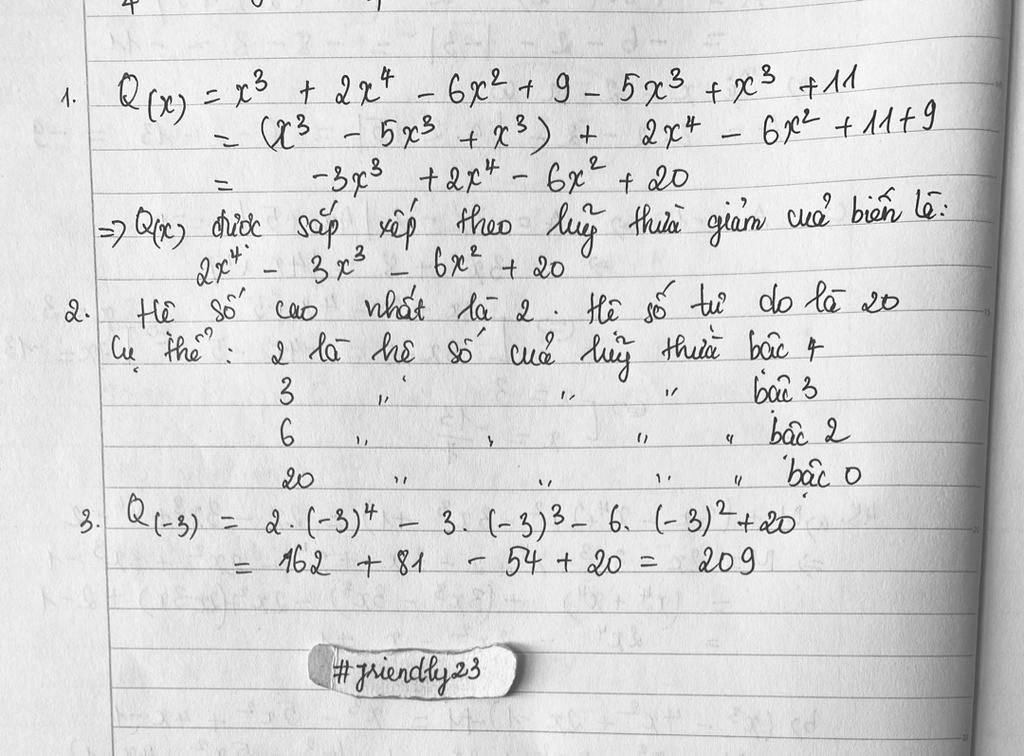 1. Q(x) = x³ + 2x⁴ - 6x² + 9 - 5x³ + x³ + 11
= (x³ - 5x³ + x³) + 2x⁴ - 6x² + 11+9
= -3x³ + 2x⁴ - 6x² + 20
=> Q(x) được sắp xếp theo luỹ thừa giảm cuả biến là:
2x⁴ - 3x³ - 6x² + 20
2. Hệ số cao nhất là 2. Hệ số tự do là 20
Cụ thể: 2 là hệ số cuả luỹ thừa bậc 4
3 " " " bậc 3
6 " " " " bậc 2
20 " " " " bậc 0
3. Q(-3) = 2.(-3)⁴ - 3.(-3)³ - 6.(-3)² + 20
= 162 + 81 - 54 + 20 = 209
#friendly23